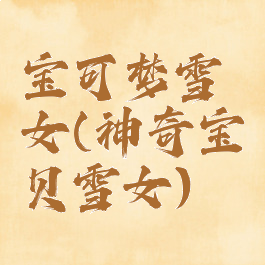 宝可梦雪
女(神奇宝
贝雪女)